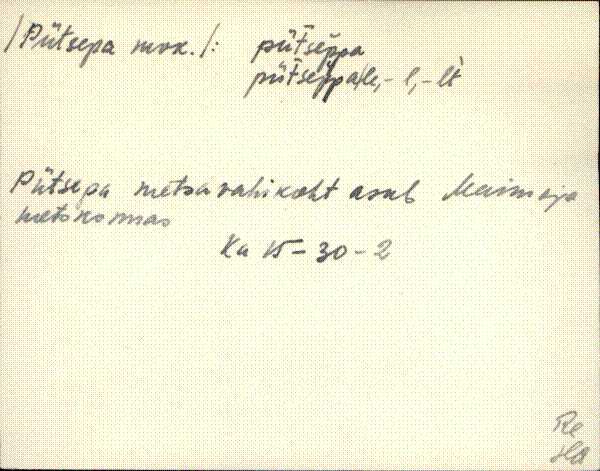 /Pütsepa mvk./: pütsèppa
pütsèppa/le, - l, - lt
Pütsepa metsavahikoht asub
metskonnas
Ka 15 - 30 - 2
Re